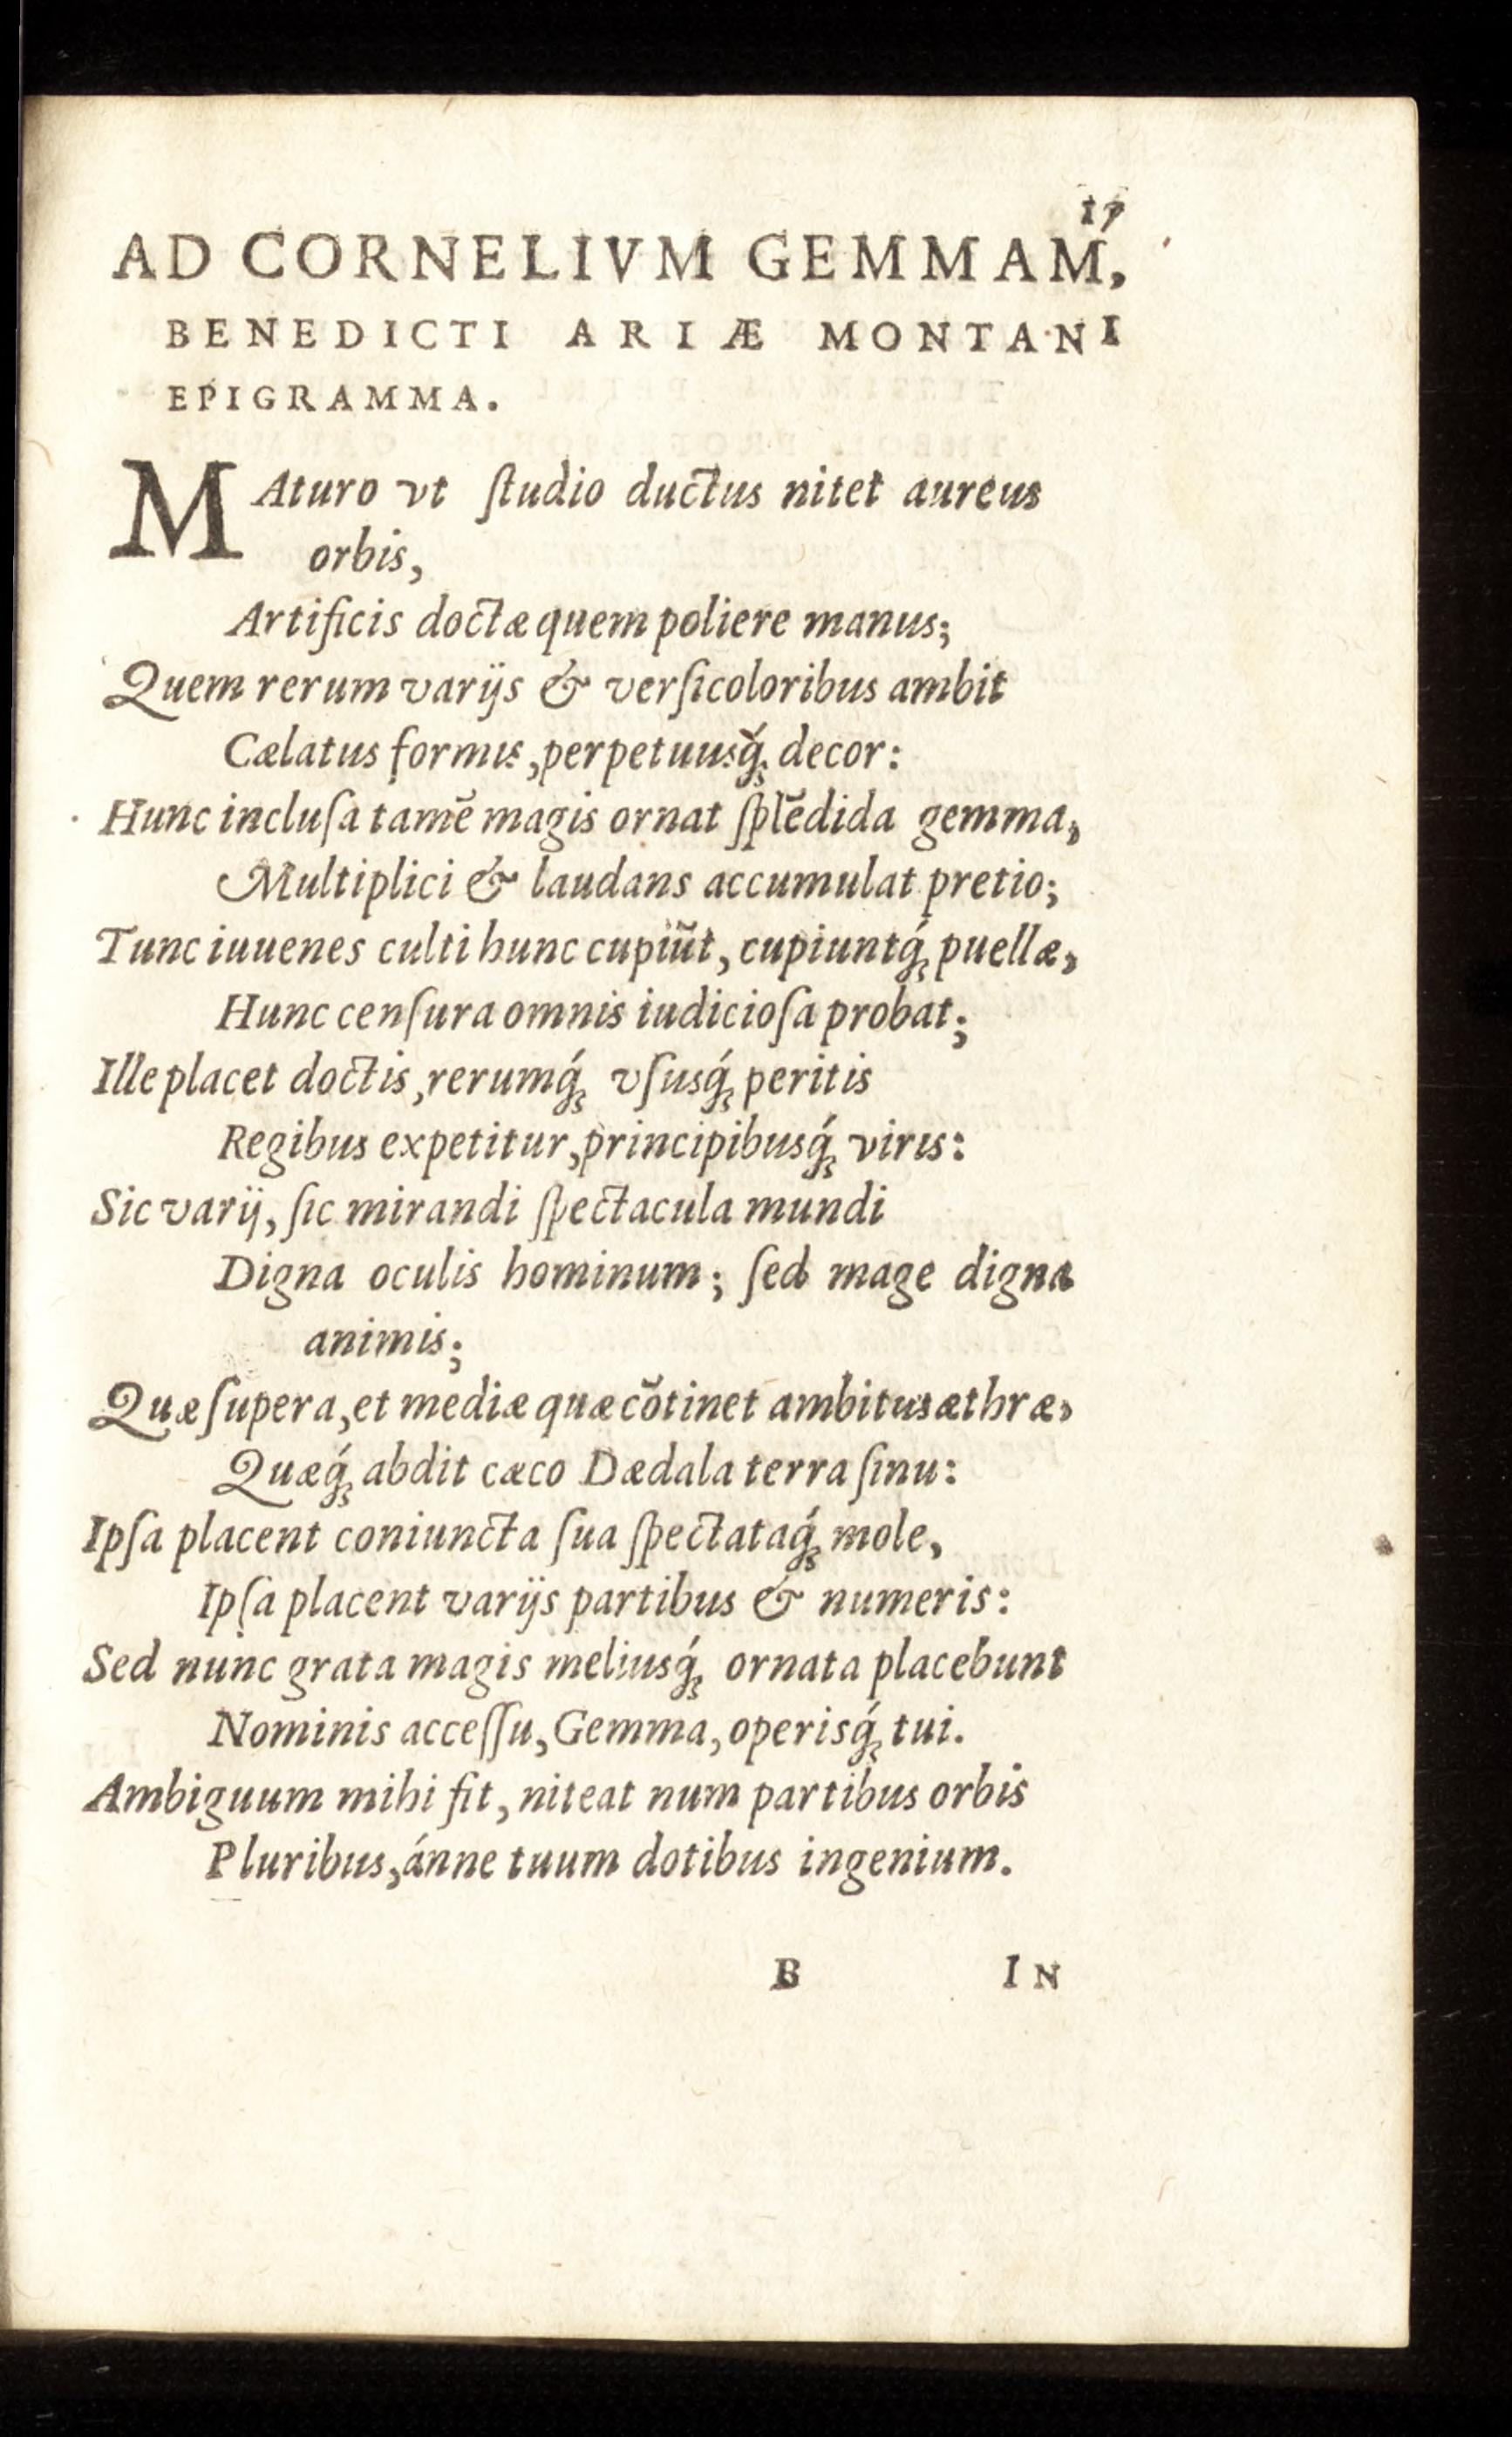 17
AD CORNELIVM GEMMAM,
BENEDICTI ARIÆ MONTANI
EPIGRAMMA.
MAturo vt ſtudio ductus nitet aureus
orbis,
Artificis doctæ quem poliere manus;
Quem rerum varijs & verſicoloribus ambit
Cælatus formis, perpetuusq́; decor:
Hunc incluſa tamē magis ornat ſplēdida gemma,
Multiplici & laudans accumulat pretio;
Tunc iuuenes culti hunc cupiūt, cupiuntq́; puellæ,
Hunc cenſura omnis iudicioſa probat;
Ille placet doctis, rerumq́; vſusq́; peritis
Regibus expetitur, principibusq́; viris:
Sic varij, ſic mirandi ſpectacula mundi
Digna oculis hominum; ſed mage digna
animis;
Quæ ſupera, et mediæ quæ cōtinet ambitus æthræ,
Quæq́; abdit cæco Dædala terra ſinu:
Ipſa placent coniuncta ſua ſpectataq́; mole,
Ipſa placent varijs partibus & numeris:
Sed nunc grata magis meliusq́; ornata placebunt
Nominis acceſſu, Gemma, operisq́; tui.
Ambiguum mihi fit, niteat num partibus orbis
Pluribus, ánne tuum dotibus ingenium.
B IN